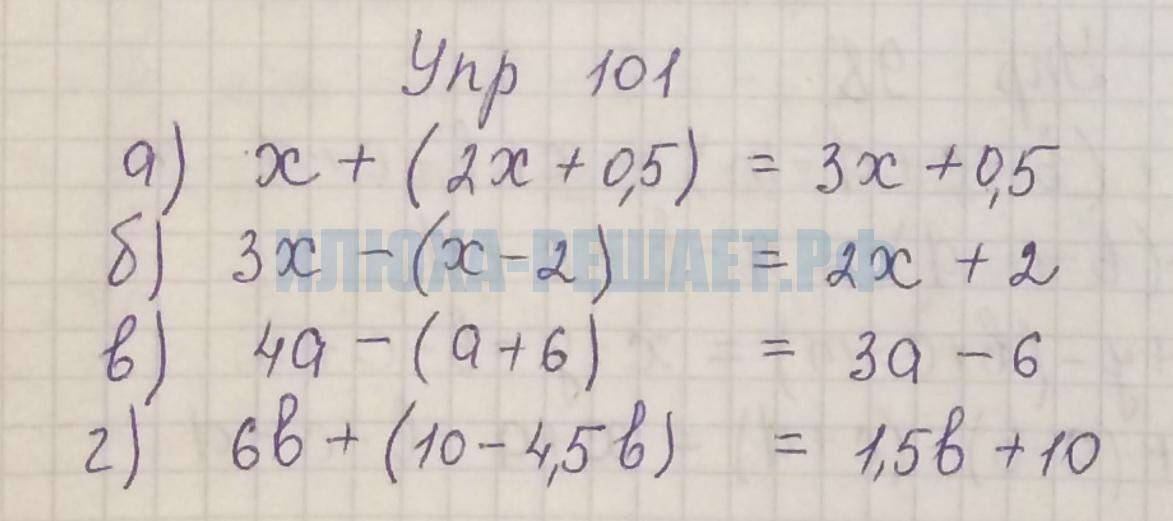 Упр 101
а) x + (2x + 0,5) = 3x + 0,5
б) 3x - (x - 2) = 2x + 2
ИЛЮХА-РЕШАЕТ.РФ
в) 4a - (a + 6) = 3a - 6
г) 6b + (10 - 4,5b) = 1,5b + 10